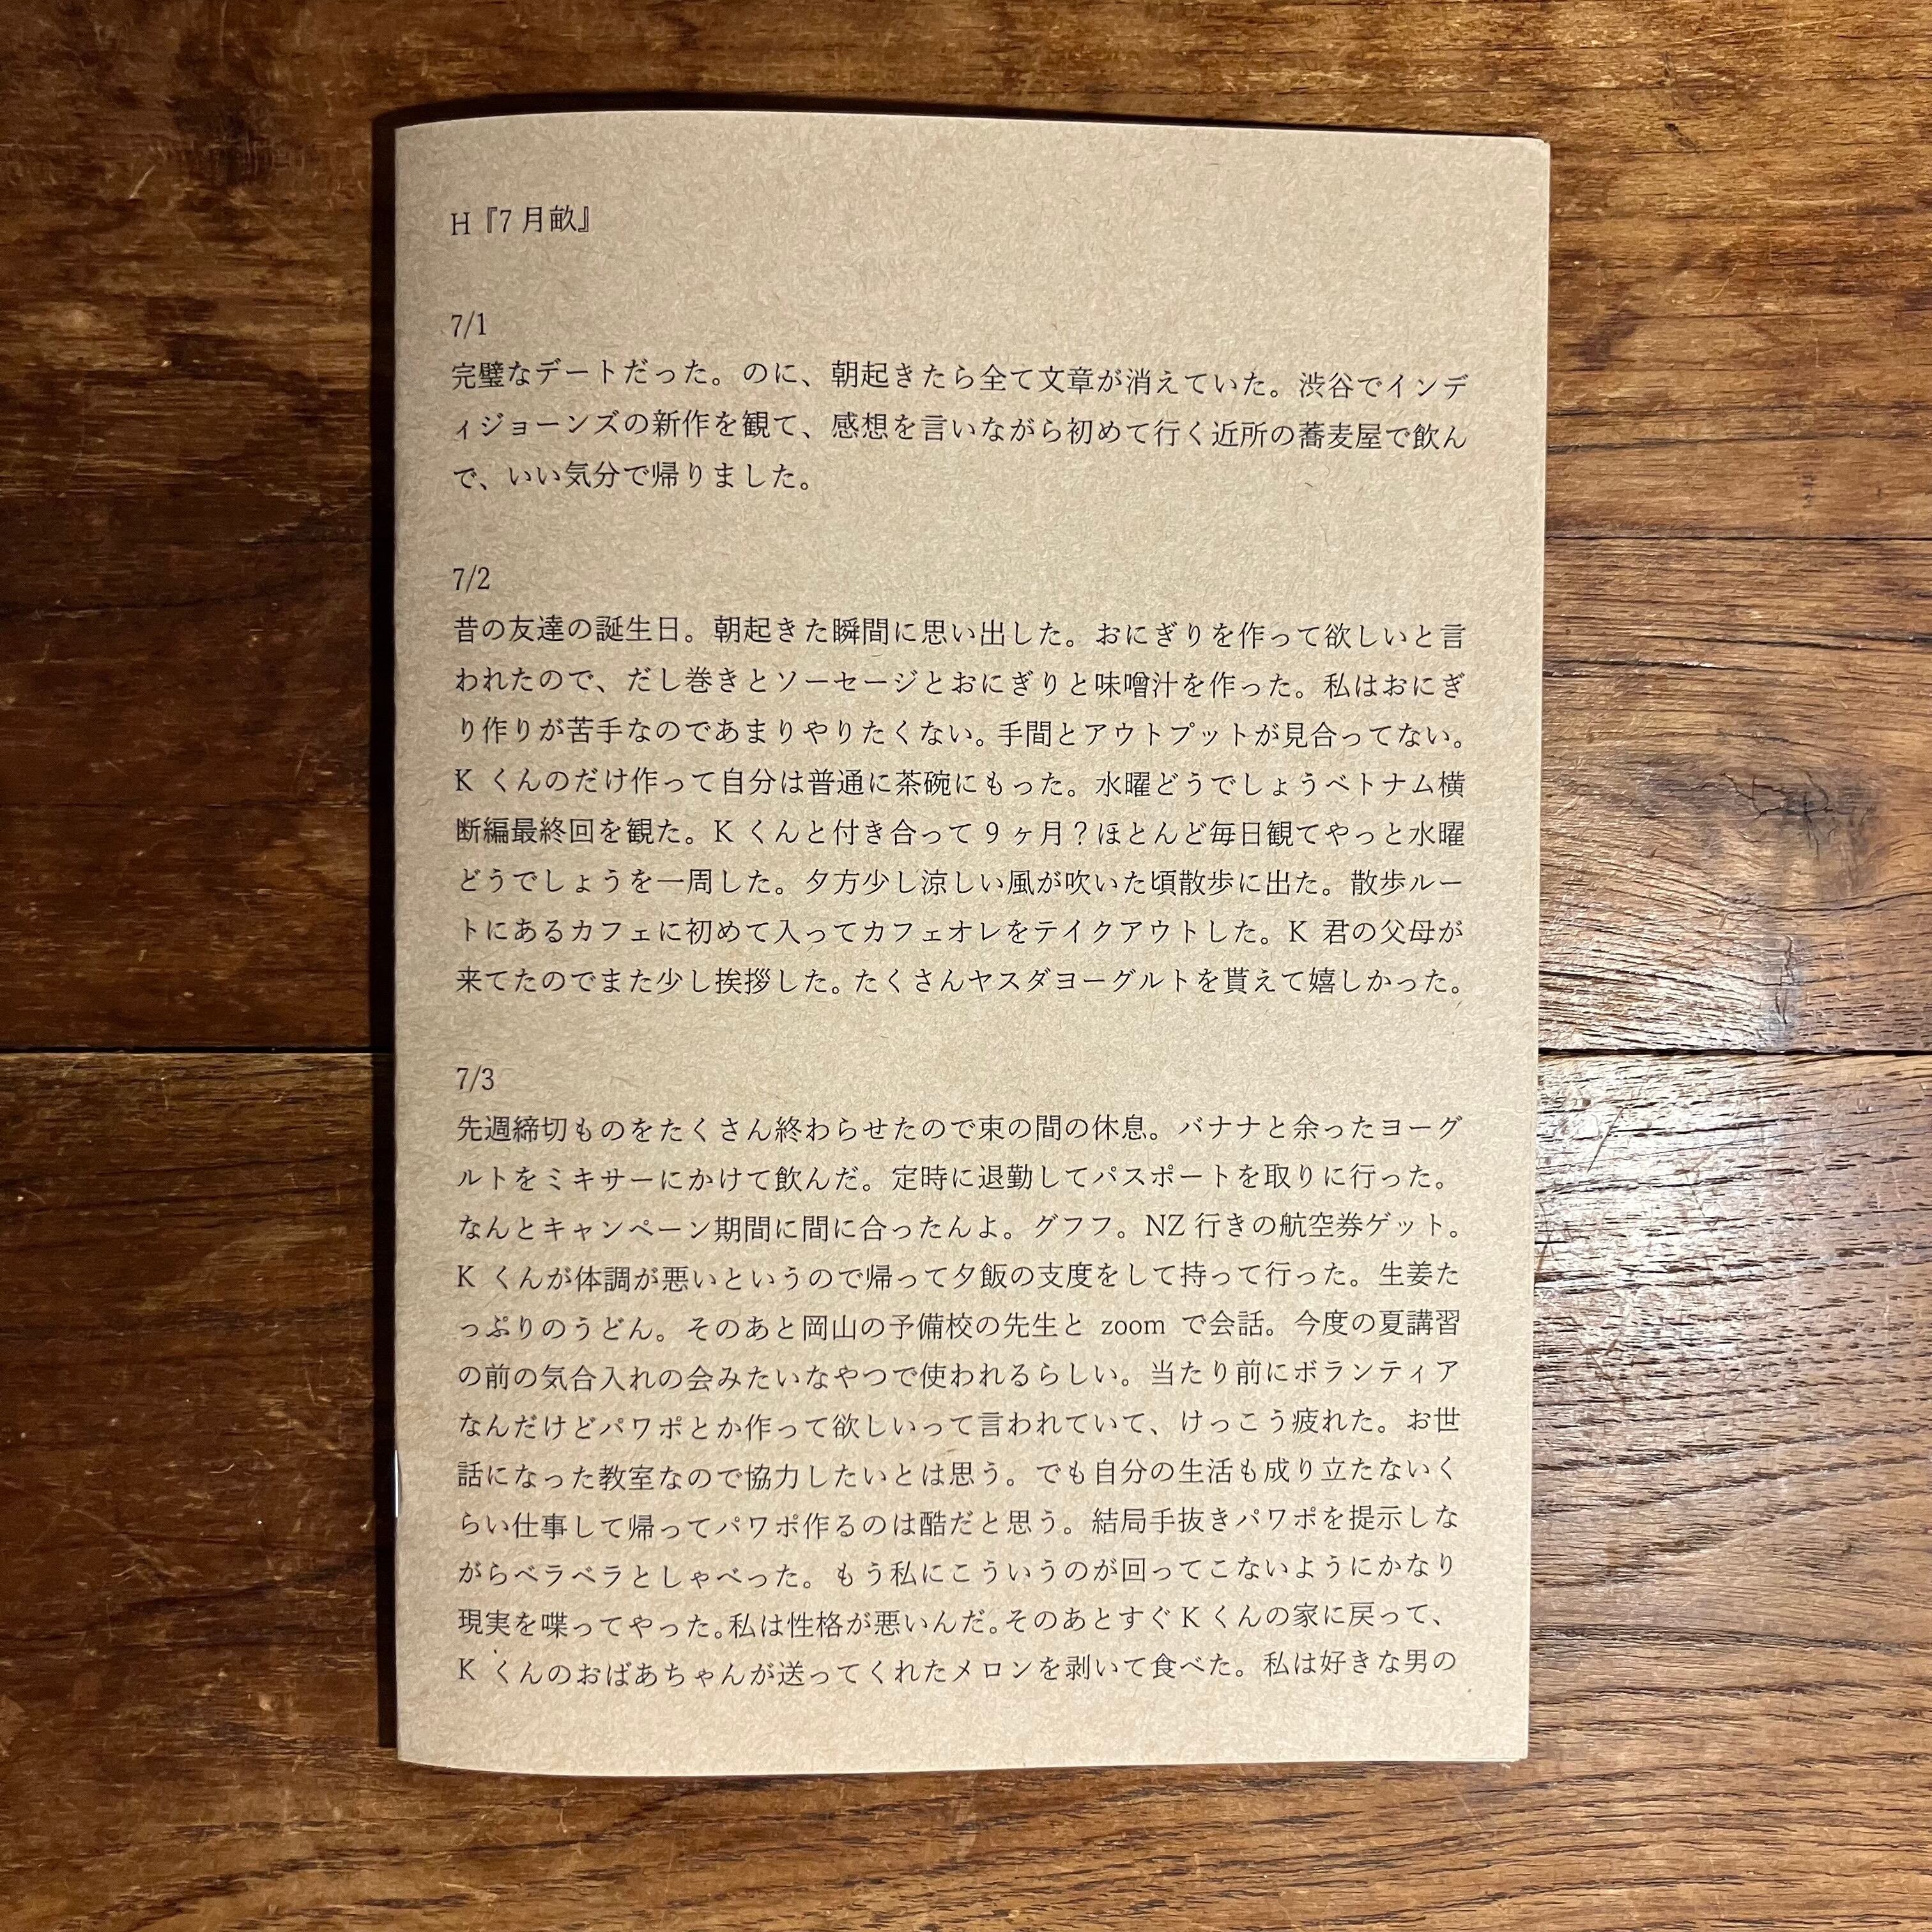 H『7月畝』
7/1
完璧なデートだった。のに、朝起きたら全て文章が消えていた。渋谷でインデ
ィジョーンズの新作を観て、感想を言いながら初めて行く近所の蕎麦屋で飲ん
で、いい気分で帰りました。
7/2
昔の友達の誕生日。朝起きた瞬間に思い出した。おにぎりを作って欲しいと言
われたので、だし巻きとソーセージとおにぎりと味噌汁を作った。私はおにぎ
り作りが苦手なのであまりやりたくない。手間とアウトプットが見合ってない。
K くんのだけ作って自分は普通に茶碗にもった。水曜どうでしょうベトナム横
断編最終回を観た。K くんと付き合って 9 ヶ月？ほとんど毎日観てやっと水曜
どうでしょうを一周した。夕方少し涼しい風が吹いた頃散歩に出た。散歩ルー
トにあるカフェに初めて入ってカフェオレをテイクアウトした。K 君の父母が
来てたのでまた少し挨拶した。たくさんヤスダヨーグルトを貰えて嬉しかった。
7/3
先週締切ものをたくさん終わらせたので束の間の休息。バナナと余ったヨーグ
ルトをミキサーにかけて飲んだ。定時に退勤してパスポートを取りに行った。
なんとキャンペーン期間に間に合ったんよ。グフフ。NZ 行きの航空券ゲット。
K くんが体調が悪いというので帰って夕飯の支度をして持って行った。生姜た
っぷりのうどん。そのあと岡山の予備校の先生と zoom で会話。今度の夏講習
の前の気合入れの会みたいなやつで使われるらしい。当たり前にボランティア
なんだけどパワポとか作って欲しいって言われていて、けっこう疲れた。お世
話になった教室なので協力したいとは思う。でも自分の生活も成り立たないく
らい仕事して帰ってパワポ作るのは酷だと思う。結局手抜きパワポを提示しな
がらベラベラとしゃべった。もう私にこういうのが回ってこないようにかなり
現実を喋ってやった。私は性格が悪いんだ。そのあとすぐ K くんの家に戻って、
K くんのおばあちゃんが送ってくれたメロンを剥いて食べた。私は好きな男の